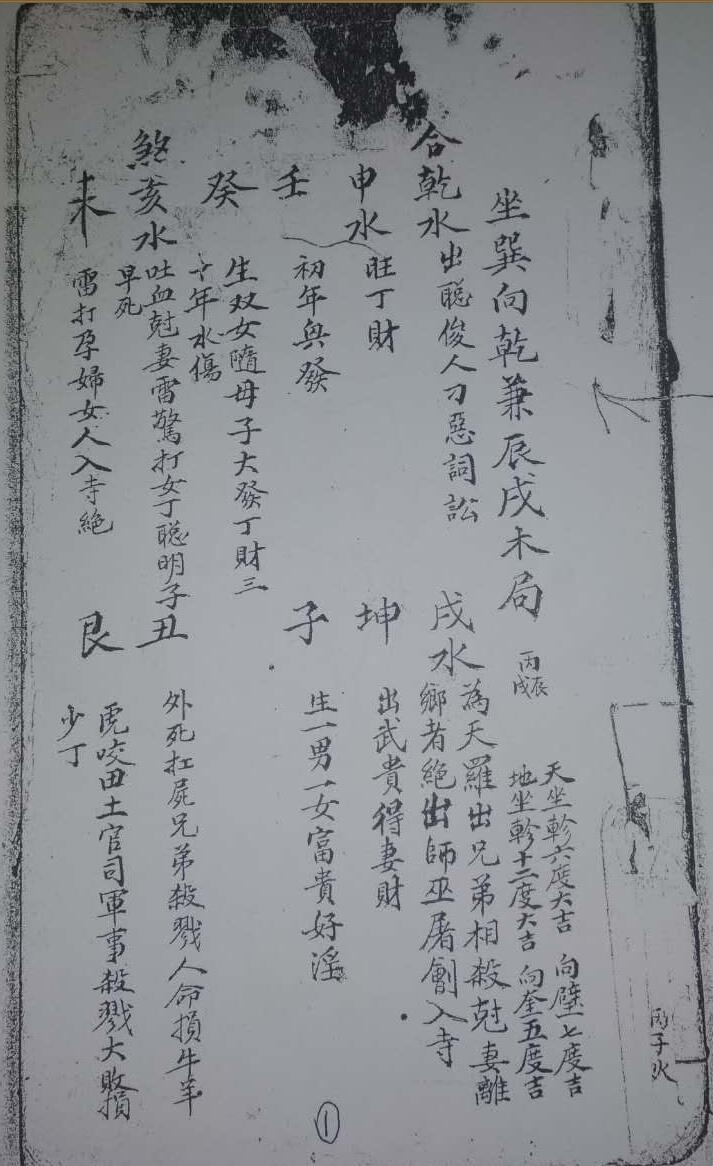 丙子火
天坐軫六度大吉 向壁七度吉
地坐軫十二度大吉 向奎五度吉
坐巽向乾兼辰戌木局 丙辰 丙戌
合乾水 出聪俊人刁惡詞訟
戌水 為天羅出兄弟相殺尅妻離
鄉者絕出師巫屠劊入寺
申水 旺丁財
坤 出武貴得妻財
壬 初年興發
子 生一男一女富貴好淫
癸 生双女隨母子大發丁財三
十年水傷
煞亥水 吐血尅妻雷驚打女丁聪明子
早死
丑 外死扛屍兄弟殺戮人命損牛羊
未 雷打孕婦女人入寺絕
艮 虎咬田土官司軍事殺戮大敗損
少丁
①